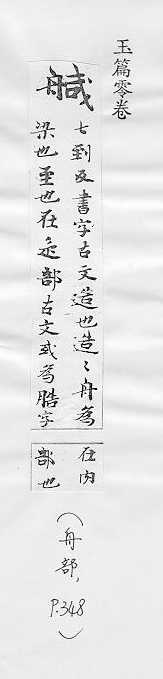 玉篇零卷
七到反書字古文造也造〻舟為
梁也至也在辵部古文或為字
在肉
部也
(舟部, P.348)